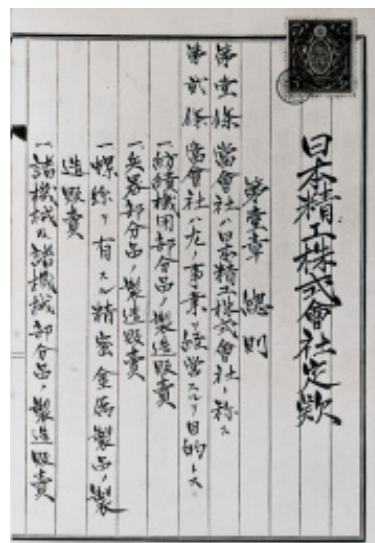 日本精工株式會社定款
第壹章 總則
第壹條 當會社ハ日本精工株式會社ト称ス
第貳條 當會社ハ左ノ事業ヲ経営スルヲ目的トス
一紡績機用部分品ノ製造販賣
一兵器部分品ノ製造販賣
一螺絲ヲ有スル精密金属製品ノ製
造販賣
一諸機械及諸機械部分品ノ製造販賣